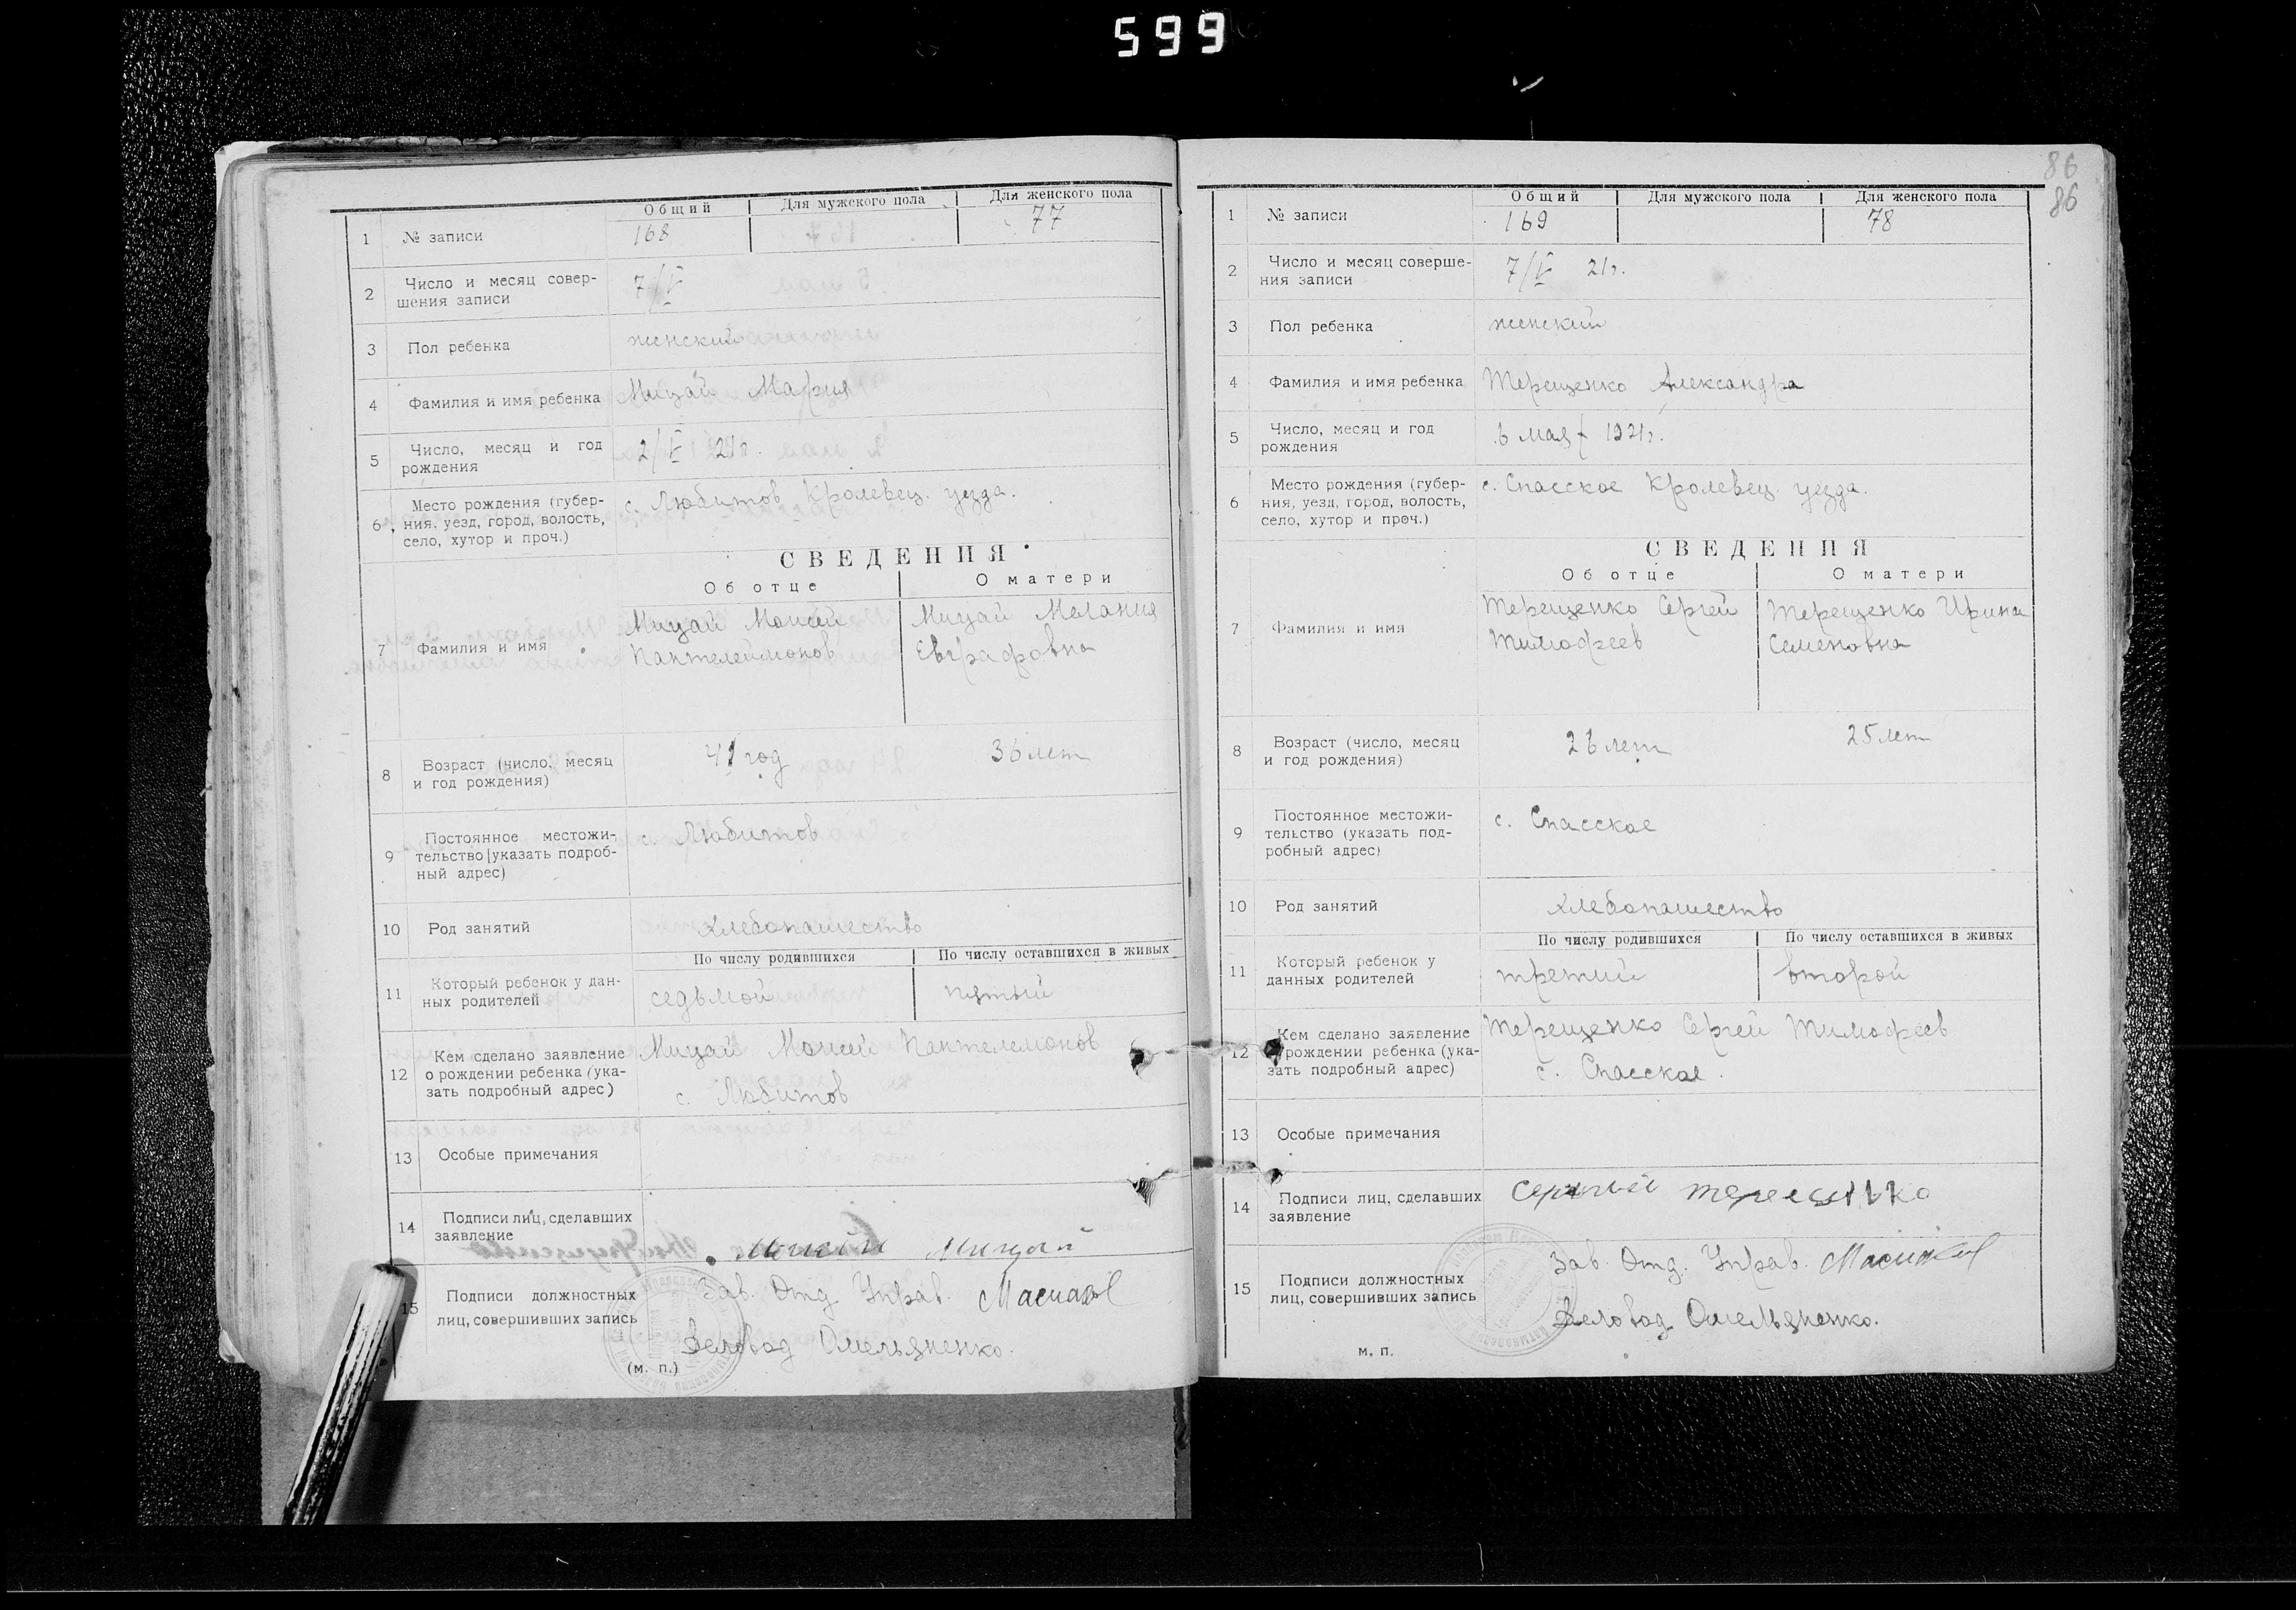 599
Общий Для мужского пола Для женского пола
1 № записи 168 77
2 Число и месяц совер-
шения записи 7/V
3 Пол ребенка женский
4 Фамилия и имя ребенка Мицай Мария
5 Число, месяц и год
рождения 2/V 21г.
6 Место рождения (губер-
ния, уезд, город, волость,
село, хутор и проч.) с. Любитов Кролевец. уезда.
СВЕДЕНИЯ
Об отце О матери
7 Фамилия и имя
Мицай Моисей Мицай Мелания
Пантелеймонов Евграфовна
8 Возраст (число, месяц
и год рождения) 41 год 36 лет
9 Постоянное местожи-
тельство [указать подроб-
ный адрес) с. Любитов
10 Род занятий Хлебопашество
По числу родившихся По числу оставшихся в живых
11 Который ребенок у дан-
ных родителей седьмой пятый
12 Кем сделано заявление
о рождении ребенка (ука-
зать подробный адрес)
Мицай Моисей Пантелемонов
с. Любитов
13 Особые примечания
14 Подписи лиц, сделавших
заявление Моисей Мицай
15 Подписи должностных
лиц, совершивших запись
Зав. Отд. Управ.
Деловод Омельяненко.
(м. п.)
86
86
Общий Для мужского пола Для женского пола
1 № записи 169 78
2 Число и месяц соверше-
ния записи 7/V 21г.
3 Пол ребенка женский
4 Фамилия и имя ребенка Терещенко Александра
5 Число, месяц и год
рождения 6 мая 1921г.
6 Место рождения (губер-
ния, уезд, город, волость,
село, хутор и проч.) с. Спасское Кролевец. уезда.
СВЕДЕНИЯ
Об отце О матери
7 Фамилия и имя
Терещенко Сергей Терещенко Ирина
Тимофеев Семеновна
8 Возраст (число, месяц
и год рождения) 26 лет 25 лет
9 Постоянное местожи-
тельство (указать под-
робный адрес) с. Спасское
10 Род занятий Хлебопашество
По числу родившихся По числу оставшихся в живых
11 Который ребенок у
данных родителей третий второй
12 Кем сделано заявление
рождении ребенка (ука-
зать подробный адрес)
Терещенко Сергей Тимофеев
с. Спасское.
13 Особые примечания
14 Подписи лиц, сделавших
заявление Сергей Терещенко
15 Подписи должностных
лиц, совершивших запись
Зав. Отд. Управ.
Деловод Омельяненко.
м. п.